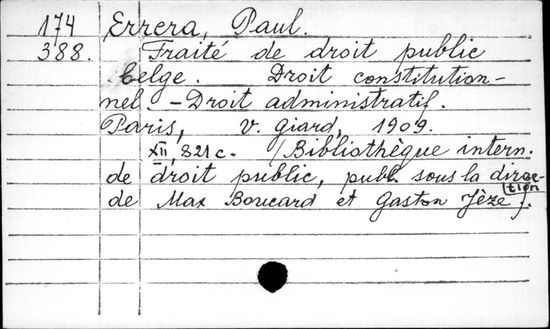 174 Errera, Paul.
388. Traité de droit public
belge. Droit constitution-
nel. - Droit administratif.
Paris, V. Giard, 1909.
XII, 821 c. (Bibliothèque intern.
de droit public, publ. sous la direc-
tion
de Max Boucard et Gaston Jèze).